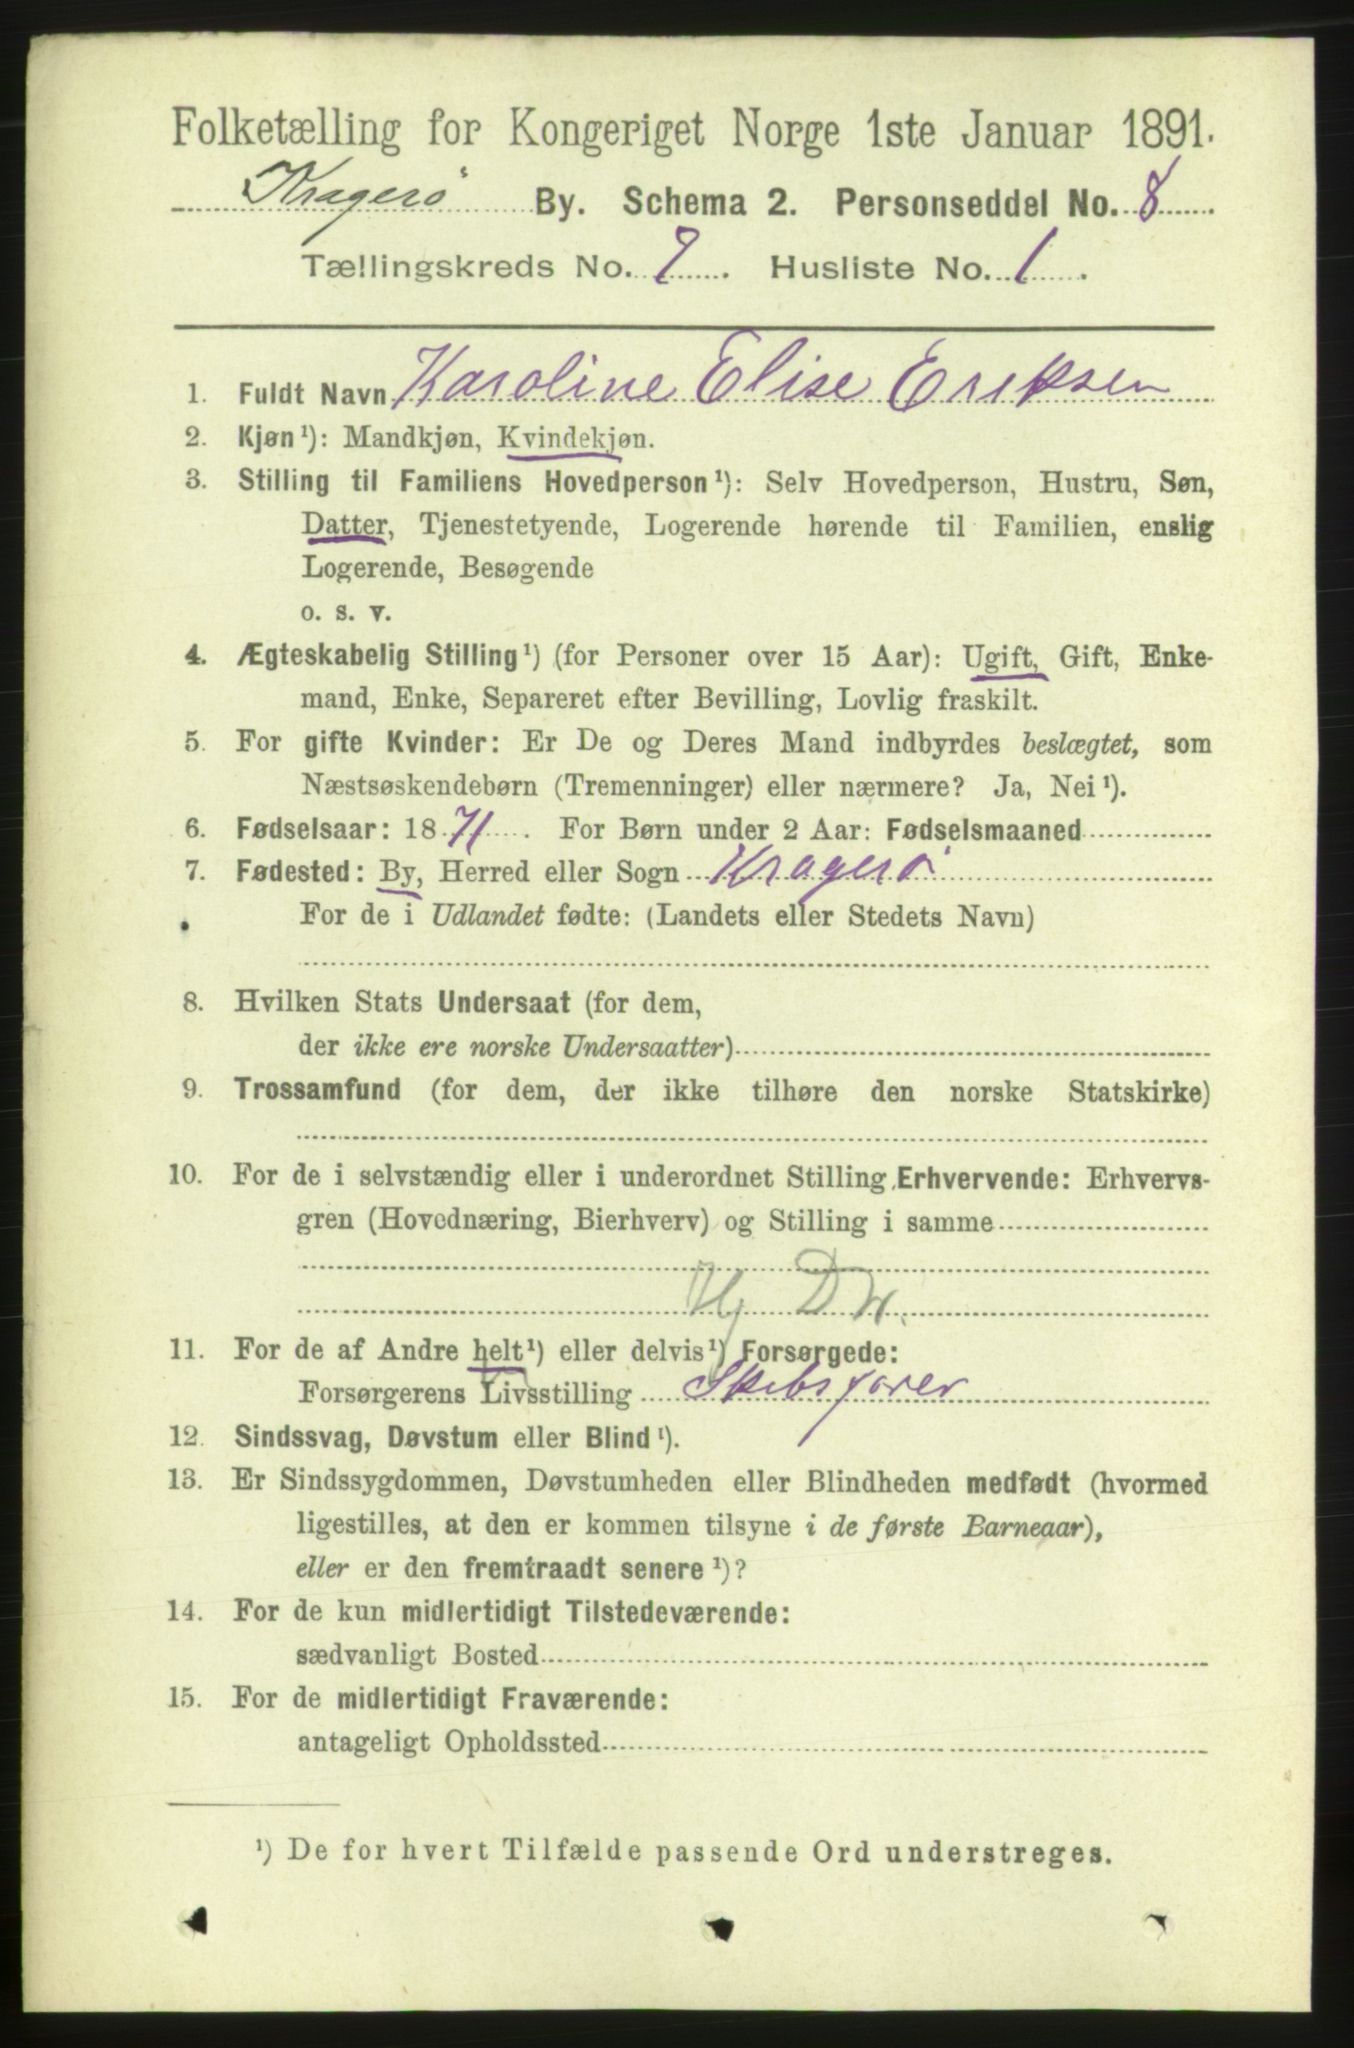 Folketælling for Kongeriget Norge 1ste Januar 1891.
Kragerø By. Schema 2. Personseddel No. 8.
Tællingskreds No. 7. Husliste No. 1.
1. Fuldt Navn Karoline Elise Eriksen
2. Kjøn¹): Mandkjøn, Kvindekjøn.
3. Stilling til Familiens Hovedperson¹): Selv Hovedperson, Hustru, Søn,
Datter, Tjenestetyende, Logerende hørende til Familien, enslig
Logerende, Besøgende
o. s. v.
4. Ægteskabelig Stilling¹) (for Personer over 15 Aar): Ugift, Gift, Enke-
mand, Enke, Separeret efter Bevilling, Lovlig fraskilt.
5. For gifte Kvinder: Er De og Deres Mand indbyrdes beslægtet, som
Næstsøskendebørn (Tremenninger) eller nærmere? Ja, Nei¹).
6. Fødselsaar: 1871. For Børn under 2 Aar: Fødselsmaaned
7. Fødested: By, Herred eller Sogn Kragerø
For de i Udlandet fødte: (Landets eller Stedets Navn)
8. Hvilken Stats Undersaat (for dem,
der ikke ere norske Undersaatter)
9. Trossamfund (for dem, der ikke tilhøre den norske Statskirke)
10. For de i selvstændig eller i underordnet Stilling Erhvervende: Erhvervs-
gren (Hovednæring, Bierhverv) og Stilling i samme
11. For de af Andre helt¹) eller delvis¹) Forsørgede:
Forsørgerens Livsstilling Skibsfører
12. Sindssvag, Døvstum eller Blind¹).
13. Er Sindssygdommen, Døvstumheden eller Blindheden medfødt (hvormed
ligestilles, at den er kommen tilsyne i de første Barneaar),
eller er den fremtraadt senere¹)?
14. For de kun midlertidigt Tilstedeværende:
sædvanligt Bosted
15. For de midlertidigt Fraværende:
antageligt Opholdssted
¹) De for hvert Tilfælde passende Ord understreges.